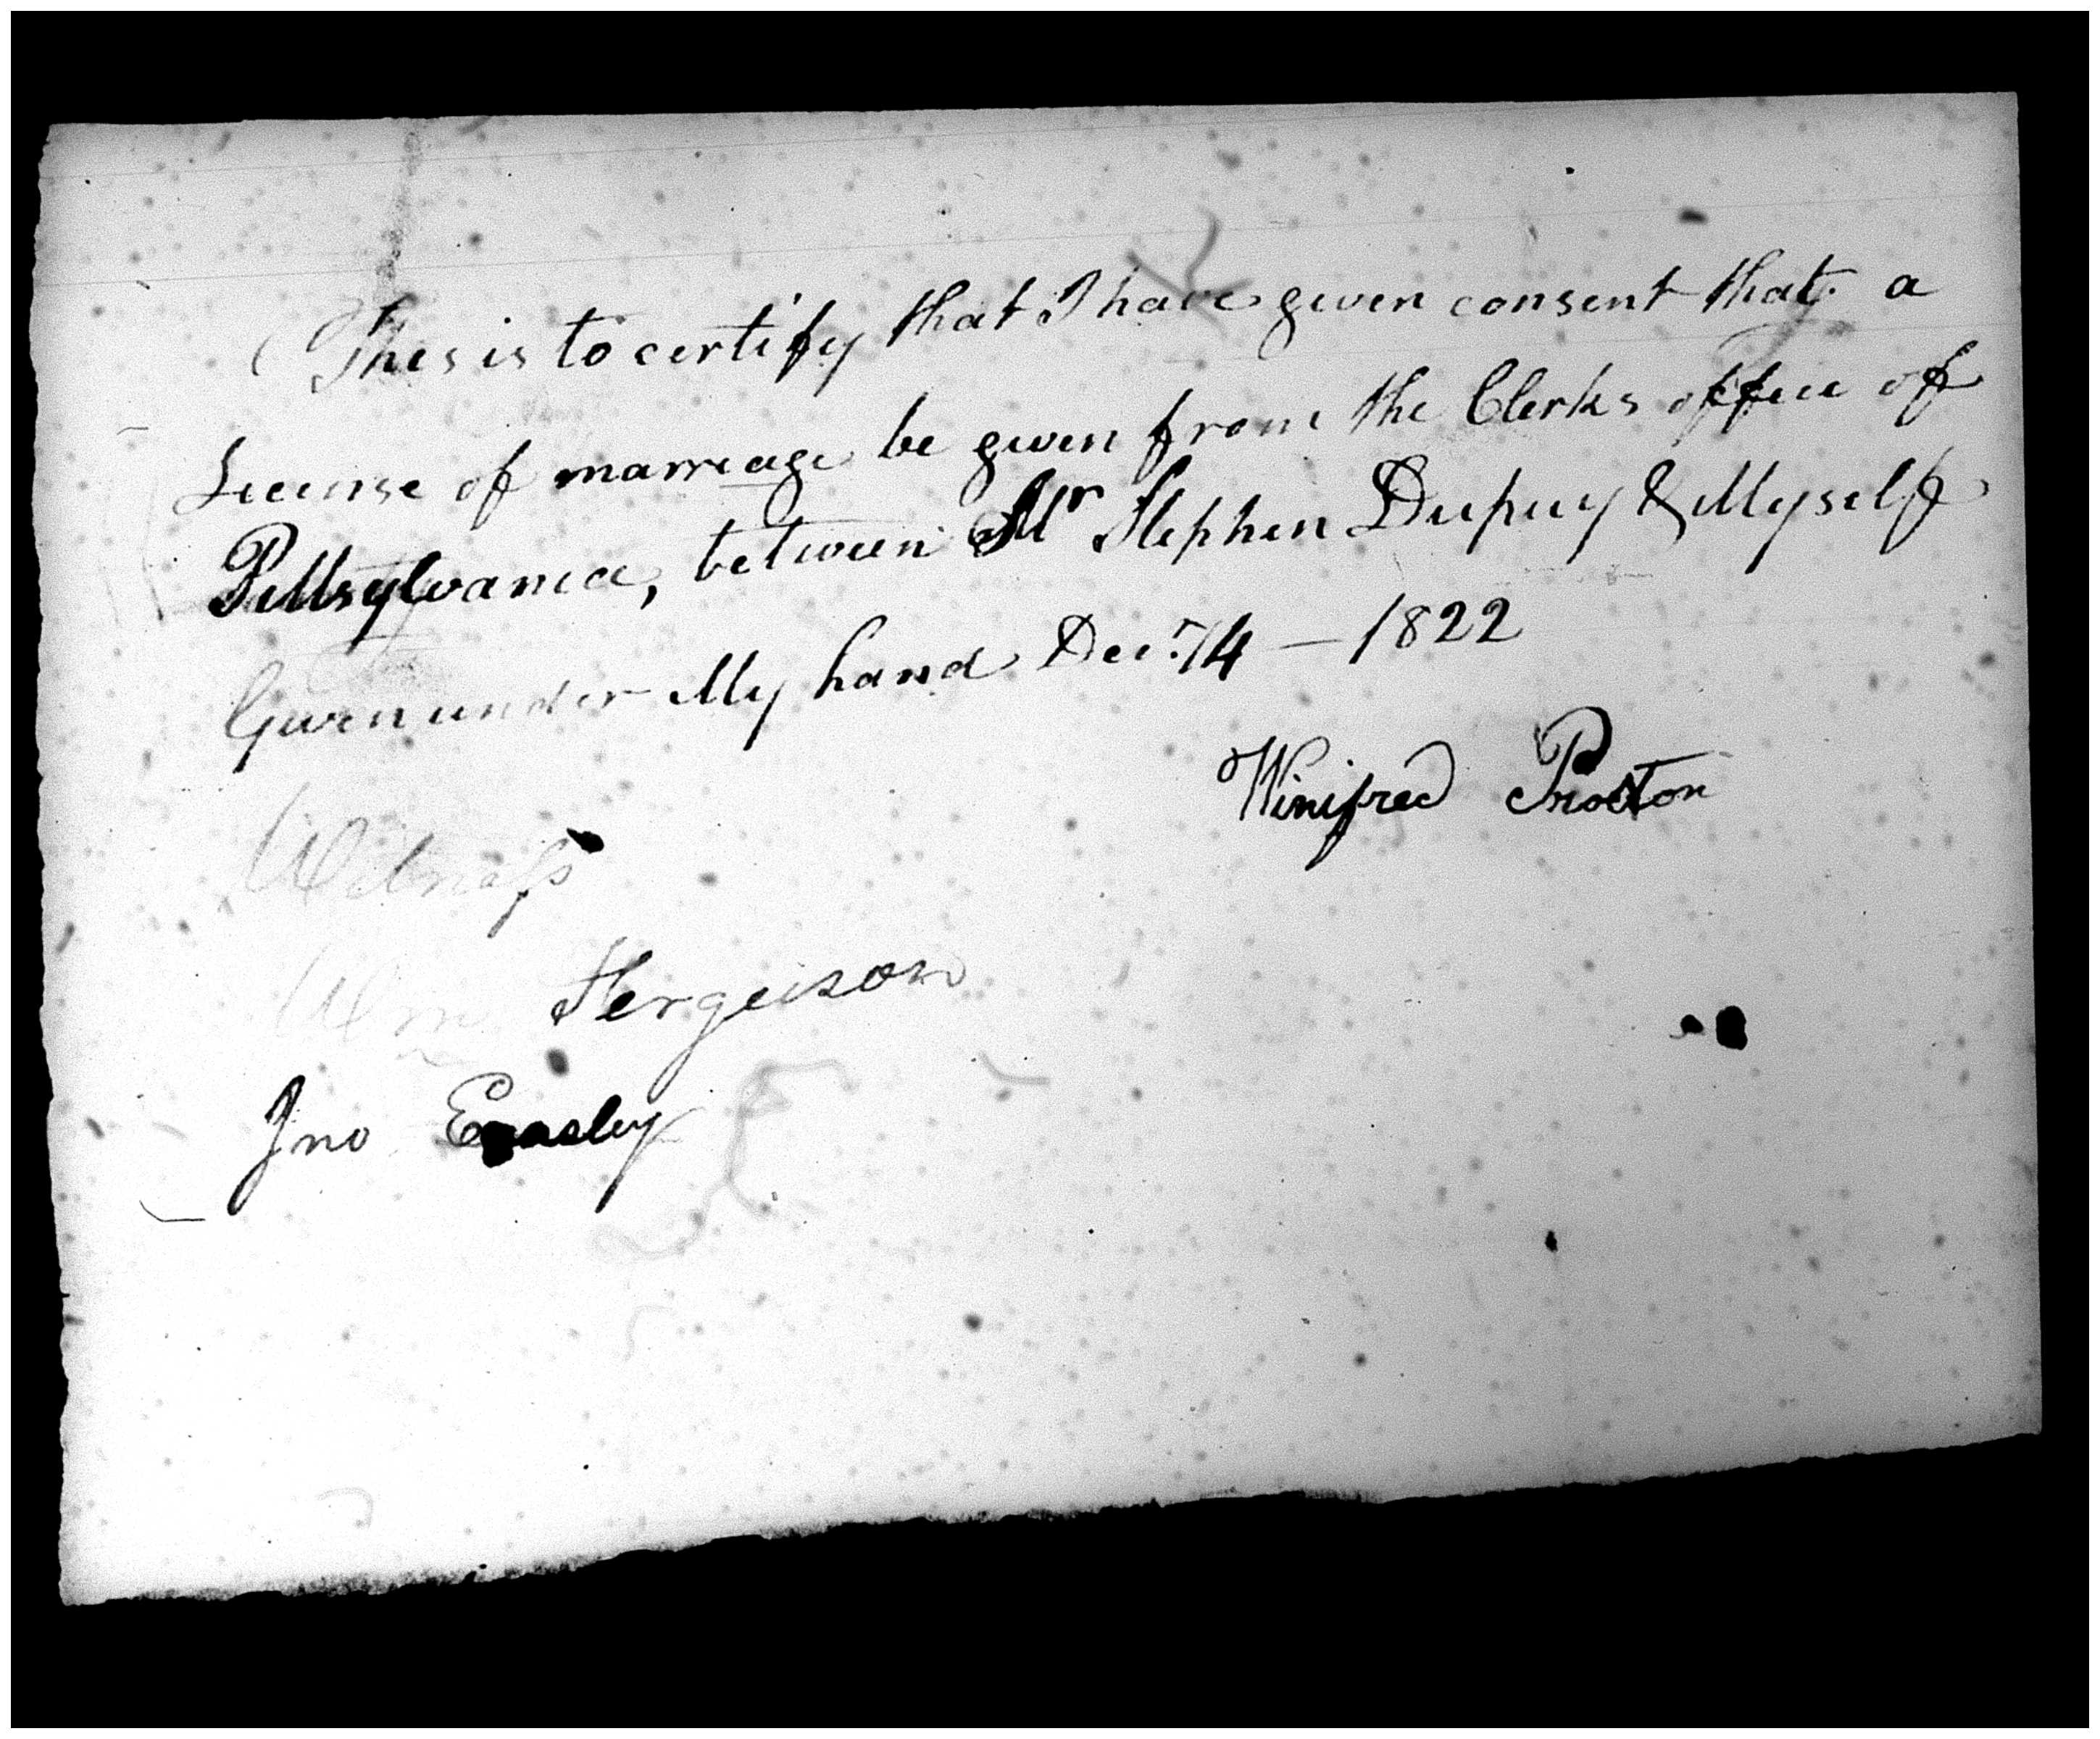 This is to certify that I have given consent that a
License of marriage be given from the Clerks office of
Pittsylvania, between Mr Stephen Dupuy & Myself
Given under My hand Decr. 14 — 1822
Winifred Procton
Witness
Wm Ferguson
Jno Easley